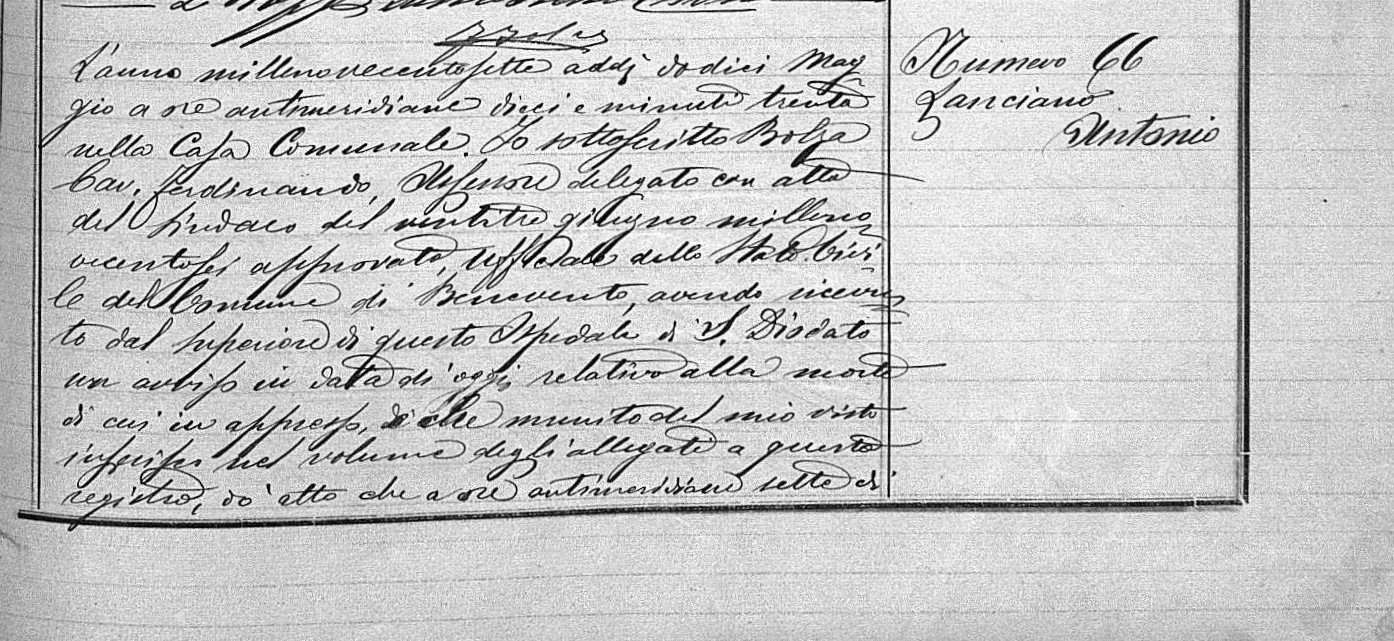 L'anno millenovecentosette addì dodici Mag
gio a ore antimeridiane dieci e minuti trenta
nella Casa Comunale. Io sottoscritto Bolza
Cav. Ferdinando, Assessore delegato con atto
del Sindaco del ventitre giugno milleno
vecentosei approvato, Ufficiale dello Stato Civi
le del Comune di Benevento, avendo ricevu
to dal superiore di questo Ospedale di S. Diodato
un avviso in data di oggi relativo alla morte
di cui in appresso, che munito del mio visto
inserisco nel volume degli allegati a questo
registro, do atto che a ore antimeridiane sette di
Numero 66
Lanciano
Antonio